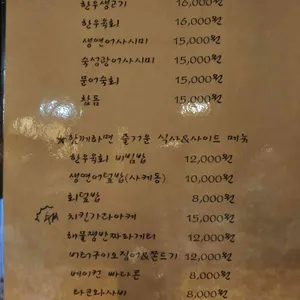 한우생고기 16,000원
한우육회 16,000원
생연어사시미 15,000원
숙성광어사시미 15,000원
문어숙회 15,000원
참돔 15,000원
★함께하면 즐거운 식사&사이드 메뉴
한우육회 비빔밥 12,000원
생연어덮밥(사케동) 10,000원
회덮밥 8,000원
치킨가라아케 15,000원
해물쟁반짜파게티 12,000원
버터구이오징어&쫀드기 12,000원
베이컨 빠다콘 8,000원
타코와사비 8,000원